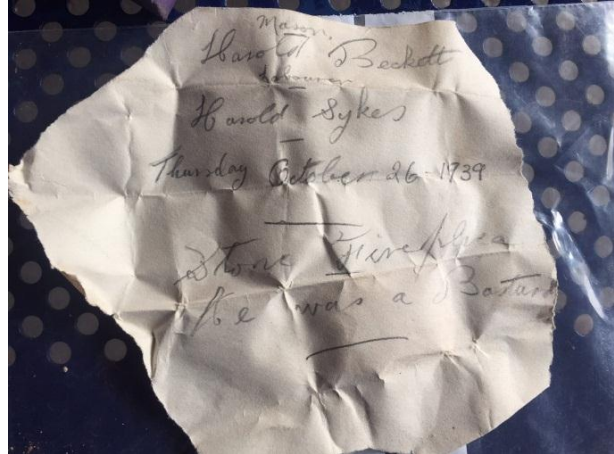 Mason.
Harold Beckett
Labourer
Harold Sykes
Thursday October 26-1939
Stone Firepla
He was a Bastard